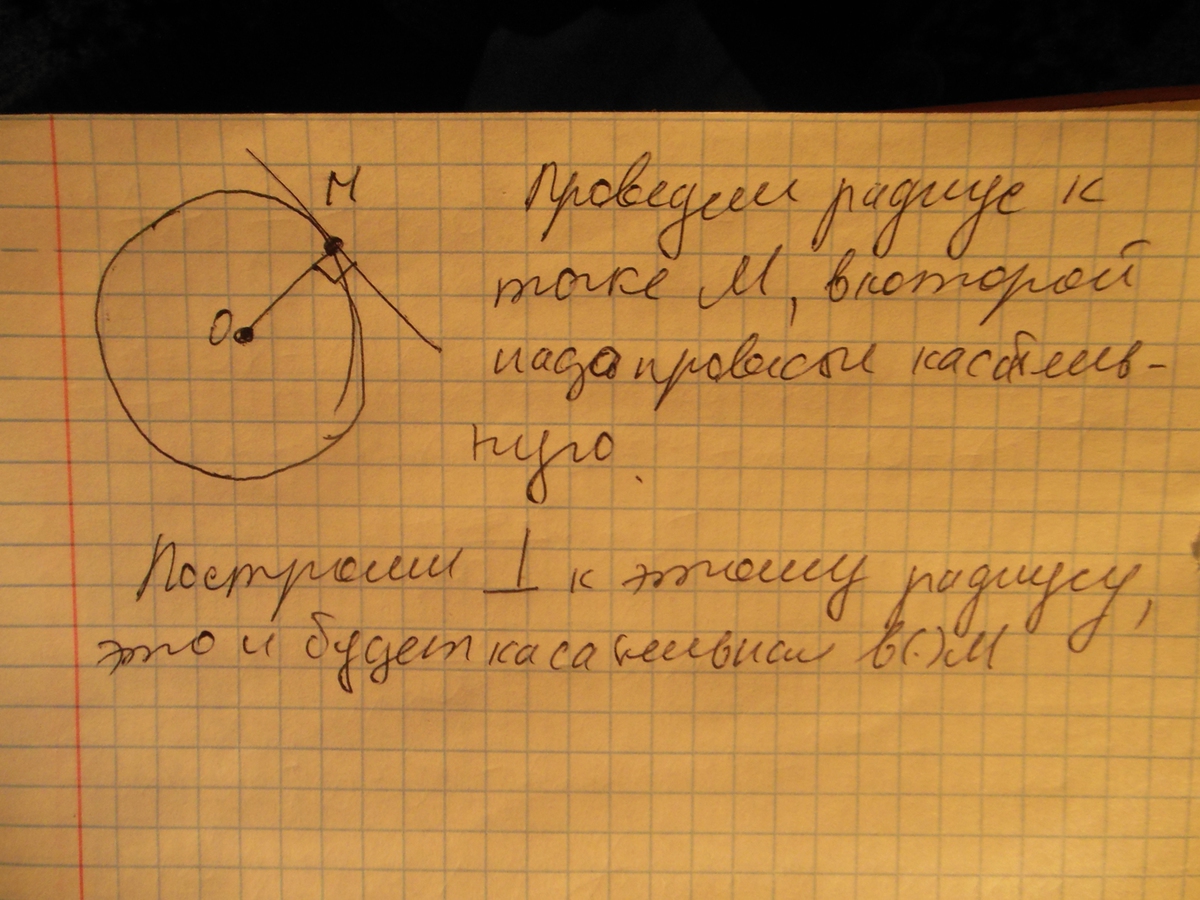 М
О
Проведем радиус к
точке М, в которой
надо провести касатель-
ную.
Построим ⊥ к этому радиусу,
это и будет касательная в(·)М